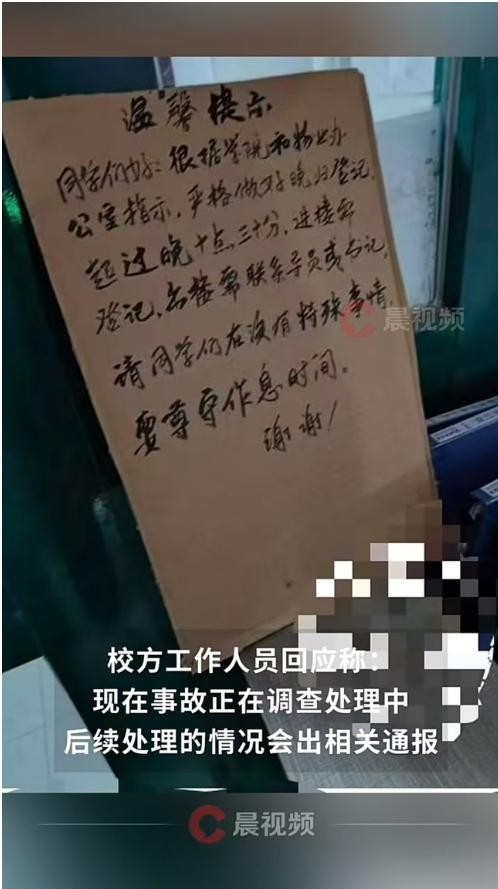 温馨提示
同学们好：很据学院和物业办
公室指示，严格做好晚归登记，
超过晚十点三十分，进楼需
登记，出楼需联系导员或书记，
请同学们在没有特殊事情，
要尊守作息时间。
谢谢！
晨视频
校方工作人员回应称：
现在事故正在调查处理中
后续处理的情况会出相关通报
晨视频